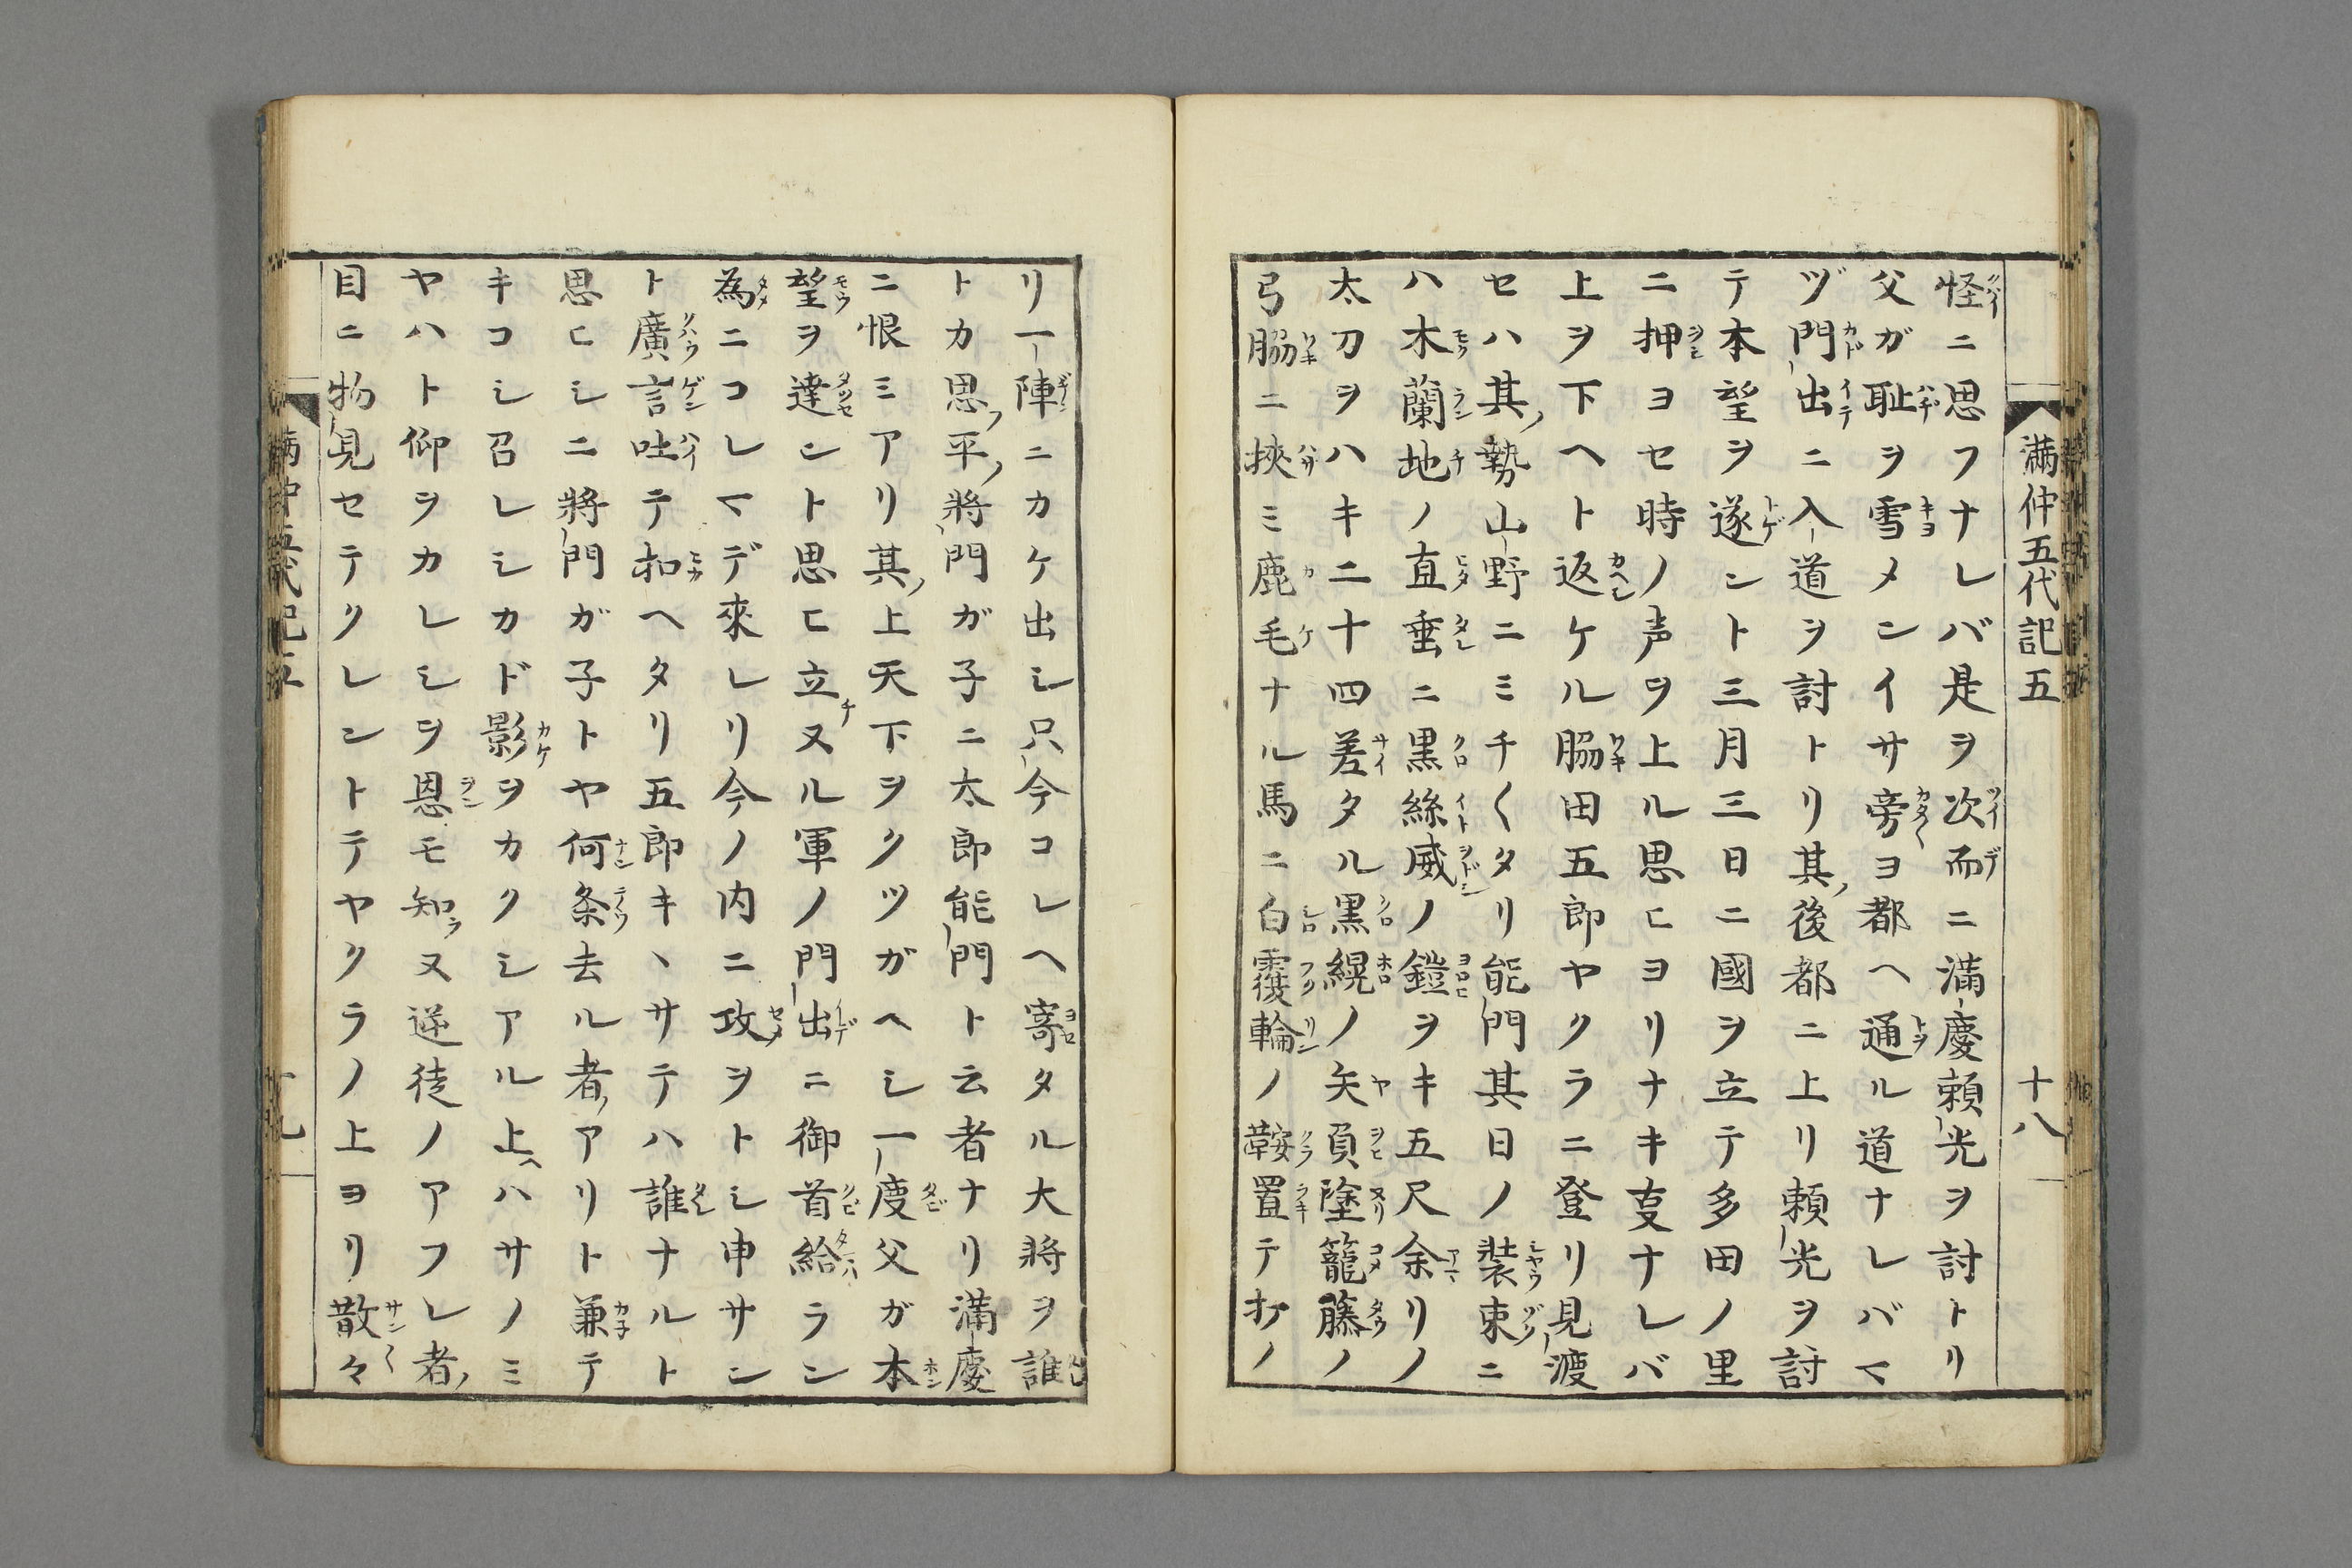 満仲五代記五　十八
怪ニ思フナレバ是ヲ次而ニ満慶頼光ヲ討トリ
父ガ耻ヲ雪メンイサ旁ヨ都ヘ通ル道ナレバマ
ヅ門出ニ入道ヲ討トリ其後都ニ上リ頼光ヲ討
テ本望ヲ遂ント三月三日ニ國ヲ立テ多田ノ里
ニ押ヨセ時ノ声ヲ上ル思ヒヨリナキ㕝ナレバ
上ヲ下ヘト返ケル脇田五郎ヤクラニ登リ見渡
セハ其勢山野ニミチ〱タリ能門其日ノ装束ニ
ハ木蘭地ノ直垂ニ黒絲威ノ鎧ヲキ五尺余リノ
太刀ヲハキ二十四差タル黒幌ノ矢負塗籠藤ノ
弓脇ニ挾ミ鹿毛ナル馬ニ白覆輪ノ鞍置テ打ノ
リ一陣ニカケ出シ只今コレヘ寄タル大将ヲ誰
トカ思フ平ノ將門ガ子ニ太郎能門ト云者ナリ満慶
ニ恨ミアリ其上天下ヲクツガヘシ一度父ガ本
望ヲ達ント思ヒ立チ又ル軍ノ門出ニ御首給ラン
為ニコレマデ來レリ今ノ内ニ攻ヲトシ申サン
ト廣言吐テ扣ヘタリ五郎キヽサテハ誰ナルト
思ヒシニ將門ガ子トヤ何条去ル者アリト兼テ
キコシ召レシカド影ヲカクシアル上ハサノミ
ヤハト仰ヲカレシヲ恩モ知ラ又逆徒ノアフレ者
目ニ物見セテクレントテヤクラノ上ヨリ散々